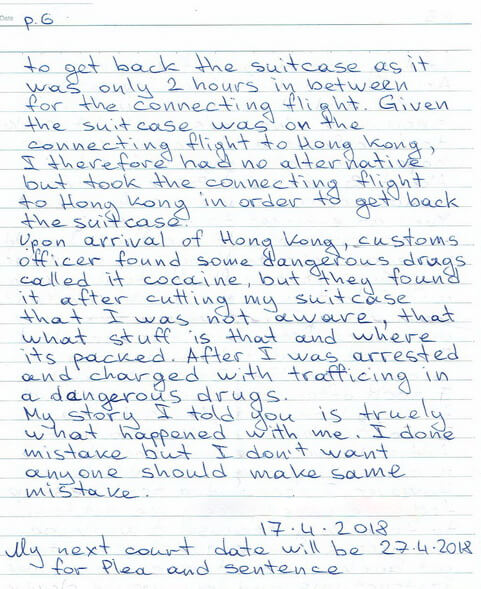 Date p.6
to get back the suitcase as it
was only 2 hours in between
for the connecting flight. Given
the suitcase was on the
connecting flight to Hong Kong,
I therefore had no alternative
but took the connecting flight
to Hong Kong in order to get back
the suitcase.
Upon arrival of Hong Kong, customs
officer found some dangerous drags
called it cocaine, but they found
it after cutting my suitcase
that I was not aware, that
what stuff is that and where
its packed. After I was arrested
and charged with trafficing in
a dangerous drugs.
My story I told you is truely
what happened with me. I done
mistake but I don't want
anyone should make same
mistake.
17.4.2018
My next court date will be 27.4.2018
for Plea and sentence